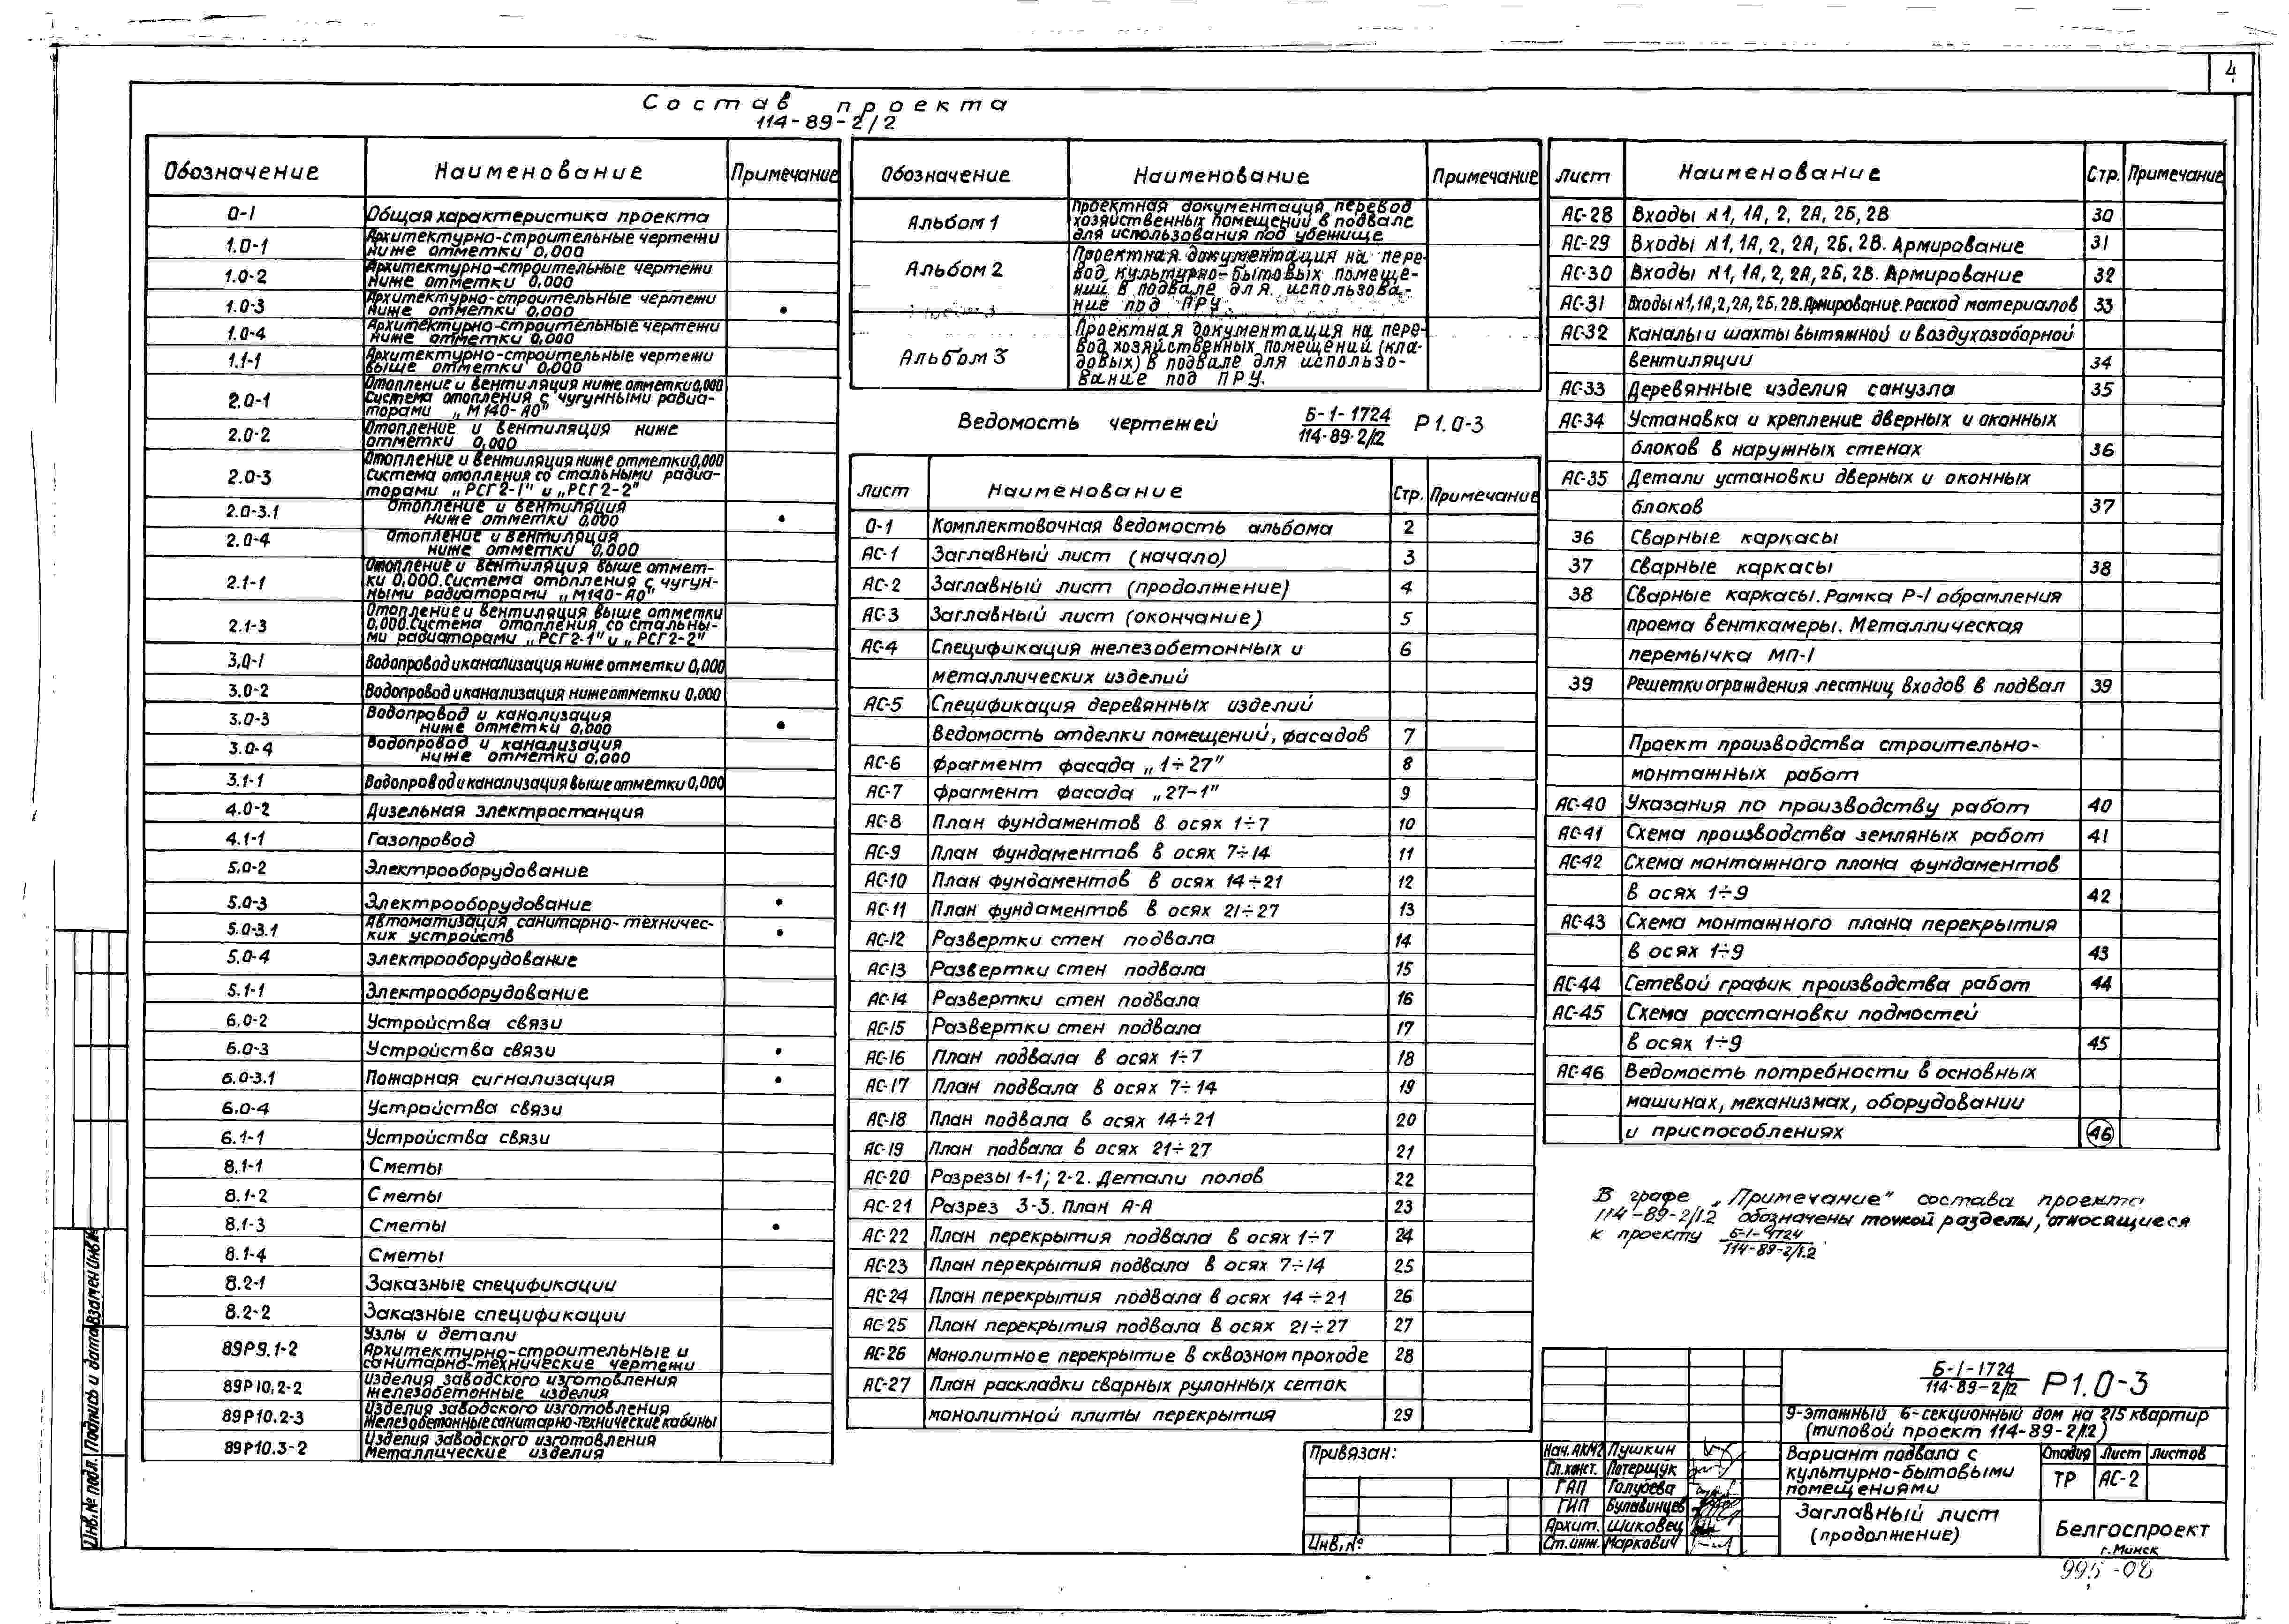 4
Состав проекта
114-89-2/2
Обозначение Наименование Примечание
0-1 Общая характеристика проекта
1.0-1 Архитектурно-строительные чертежи
ниже отметки 0,000
1.0-2 Архитектурно-строительные чертежи
ниже отметки 0,000
1.0-3 Архитектурно-строительные чертежи •
ниже отметки 0,000
1.0-4 Архитектурно-строительные чертежи
ниже отметки 0,000
1.1-1 Архитектурно-строительные чертежи
выше отметки 0,000
2.0-1 Отопление и вентиляция ниже отметки 0,000
Система отопления с чугунными радиа-
торами „М140-АО"
2.0-2 Отопление и вентиляция ниже
отметки 0,000
2.0-3 Отопление и вентиляция ниже отметки 0,000
Система отопления со стальными радиа-
торами „РСГ2-1" и „РСГ2-2"
2.0-3.1 Отопление и вентиляция •
ниже отметки 0,000
2.0-4 Отопление и вентиляция
ниже отметки 0,000
2.1-1 Отопление и вентиляция выше отмет-
ки 0,000.Система отопления с чугун-
ными радиаторами „М140-АО"
2.1-3 Отопление и вентиляция выше отметки
0,000.Система отопления со стальны-
ми радиаторами „РСГ2-1" и „РСГ2-2"
3.0-1 Водопровод и канализация ниже отметки 0,000
3.0-2 Водопровод и канализация ниже отметки 0,000
3.0-3 Водопровод и канализация •
ниже отметки 0,000
3.0-4 Водопровод и канализация
ниже отметки 0,000
3.1-1 Водопровод и канализация выше отметки 0,000
4.0-2 Дизельная электростанция
4.1-1 Газопровод
5.0-2 Электрооборудование
5.0-3 Электрооборудование •
5.0-3.1 Автоматизация санитарно-техничес- •
ких устройств
5.0-4 Электрооборудование
5.1-1 Электрооборудование
6.0-2 Устройства связи
6.0-3 Устройства связи •
6.0-3.1 Пожарная сигнализация •
6.0-4 Устройства связи
6.1-1 Устройства связи
8.1-1 Сметы
8.1-2 Сметы
8.1-3 Сметы •
8.1-4 Сметы
8.2-1 Заказные спецификации
8.2-2 Заказные спецификации
89Р9.1-2 Узлы и детали
Архитектурно-строительные и
санитарно-технические чертежи
89Р10.2-2 Изделия заводского изготовления
железобетонные изделия
89Р10.2-3 Изделия заводского изготовления
Железобетонные санитарно-технические кабины
89Р10.3-2 Изделия заводского изготовления
металлические изделия
Обозначение Наименование Примечание
Альбом 1 Проектная документация перевод
хозяйственных помещений в подвале
для использования под убежище
Альбом 2 Проектная документация на пере-
вод культурно-бытовых помеще-
ний в подвале для использова-
ние под ПРУ
Альбом 3 Проектная документация на пере-
вод хозяйственных помещений (кла-
довых) в подвале для использо-
вание под ПРУ.
Ведомость чертежей Б-1-1724 Р1.0-3
114-89-2/12
Лист Наименование Стр. Примечание
0-1 Комплектовочная ведомость альбома 2
АС-1 Заглавный лист (начало) 3
АС-2 Заглавный лист (продолжение) 4
АС-3 Заглавный лист (окончание) 5
АС-4 Спецификация железобетонных и 6
металлических изделий
АС-5 Спецификация деревянных изделий
Ведомость отделки помещений, фасадов 7
АС-6 Фрагмент фасада „1÷27" 8
АС-7 Фрагмент фасада „27-1" 9
АС-8 План фундаментов в осях 1÷7 10
АС-9 План фундаментов в осях 7÷14 11
АС-10 План фундаментов в осях 14÷21 12
АС-11 План фундаментов в осях 21÷27 13
АС-12 Развертки стен подвала 14
АС-13 Развертки стен подвала 15
АС-14 Развертки стен подвала 16
АС-15 Развертки стен подвала 17
АС-16 План подвала в осях 1÷7 18
АС-17 План подвала в осях 7÷14 19
АС-18 План подвала в осях 14÷21 20
АС-19 План подвала в осях 21÷27 21
АС-20 Разрезы 1-1; 2-2. Детали полов 22
АС-21 Разрез 3-3. План А-А 23
АС-22 План перекрытия подвала в осях 1÷7 24
АС-23 План перекрытия подвала в осях 7÷14 25
АС-24 План перекрытия подвала в осях 14÷21 26
АС-25 План перекрытия подвала в осях 21÷27 27
АС-26 Монолитное перекрытие в сквозном проходе 28
АС-27 План раскладки сварных рулонных сеток
монолитной плиты перекрытия 29
Лист Наименование Стр. Примечание
АС-28 Входы №1, 1А, 2, 2А, 2Б, 2В 30
АС-29 Входы №1, 1А, 2, 2А, 2Б, 2В. Армирование 31
АС-30 Входы №1, 1А, 2, 2А, 2Б, 2В. Армирование 32
АС-31 Входы №1, 1А, 2, 2А, 2Б, 2В. Армирование. Расход материалов 33
АС-32 Каналы и шахты вытяжной и воздухозаборной
вентиляции 34
АС-33 Деревянные изделия санузла 35
АС-34 Установка и крепление дверных и оконных
блоков в наружных стенах 36
АС-35 Детали установки дверных и оконных
блоков 37
36 Сварные каркасы
37 Сварные каркасы 38
38 Сварные каркасы. Рамка Р-1 обрамления
проема венткамеры. Металлическая
перемычка МП-1
39 Решетки ограждения лестниц входов в подвал 39
Проект производства строительно-
монтажных работ
АС-40 Указания по производству работ 40
АС-41 Схема производства земляных работ 41
АС-42 Схема монтажного плана фундаментов
в осях 1÷9 42
АС-43 Схема монтажного плана перекрытия
в осях 1÷9 43
АС-44 Сетевой график производства работ 44
АС-45 Схема расстановки подмостей
в осях 1÷9 45
АС-46 Ведомость потребности в основных
машинах, механизмах, оборудовании
и приспособлениях 46
В графе „Примечание" состава проекта
114-89-2/1.2 обозначены точкой разделы, относящиеся
к проекту Б-1-1724
114-89-2/1.2
Б-1-1724 Р1.0-3
114-89-2/12
9-этажный 6-секционный дом на 215 квартир
(типовой проект 114-89-2/1.2)
Вариант подвала с
культурно-бытовыми
помещениями
Стадия Лист Листов
ТР АС-2
Заглавный лист
(продолжение)
Белгоспроект
г.Минск
995-08
Нач.АКМ2 Пушкин
Гл.конст. Потерщук
ГАП Голубева
ГИП Булавинцев
Архит. Шиковец
Ст.инж. Маркович
Привязан:
Инв.№
Взамен Инв.№
Подпись и дата
Инв.№ подл.